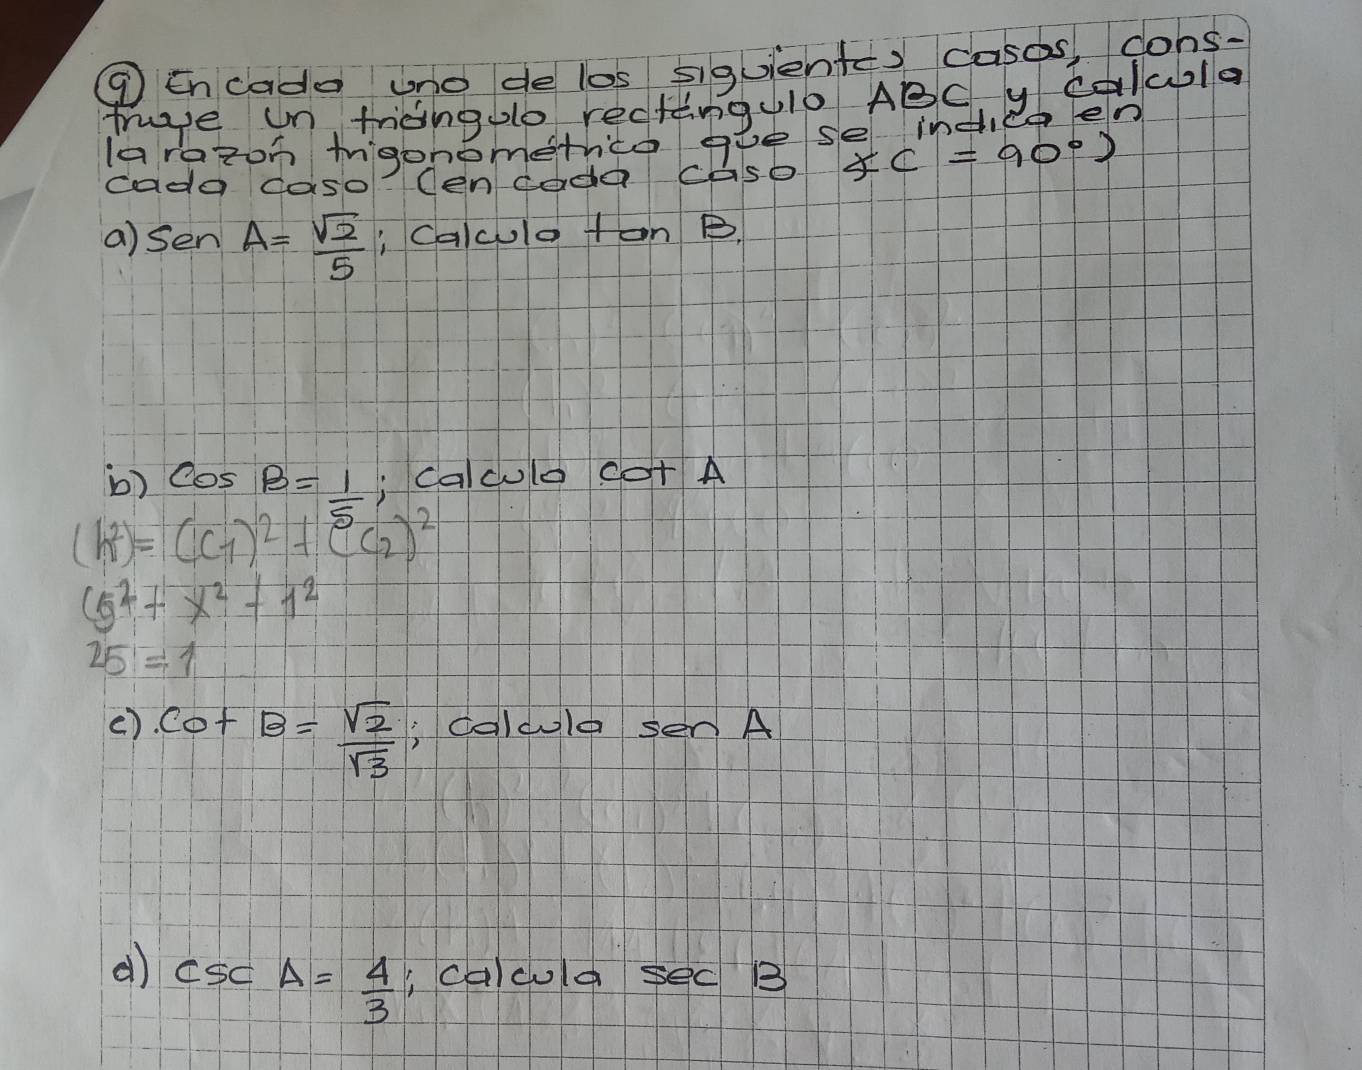 9) En cada uno de los siguientes casos, cons-
truye un triángulo rectángulo ABC, y calcula
la razón trigonométrica que se indica en
cada caso (en cada caso ∡C = 90°)
a) Sen A = √2/5; calcula tan B.
b) Cos B = 1/5; calcula cot A
(h²) = (C1)² + (C2)²
(5² + x² + 1²
25 = 1
c). Cot B = √2/√3; calcula sen A
d) csc A = 4/3; calcula sec B